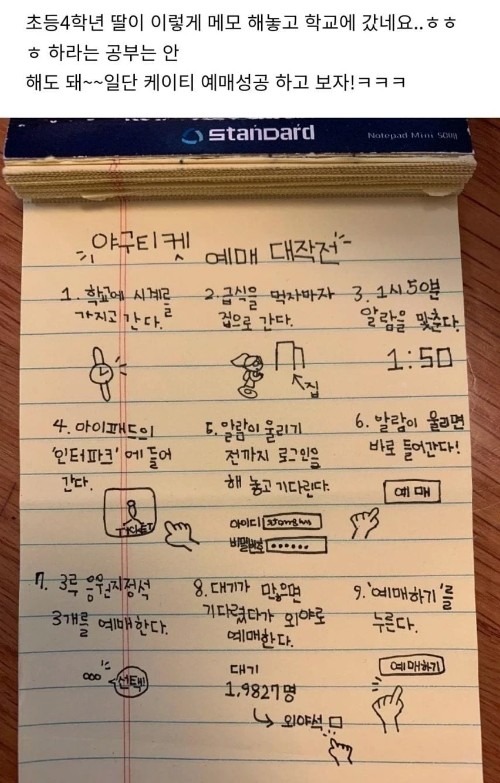 초등4학년 딸이 이렇게 메모 해놓고 학교에 갔네요..ㅎㅎ
ㅎ 하라는 공부는 안
해도 돼~~일단 케이티 예매성공 하고 보자!ㅋㅋㅋ
standard
Notepad Mini 5000
야구티켓 예매 대작전
1. 학교에 시계를
가지고 간다.
2. 급식을 먹자마자
집으로 간다.
집
3. 1시 50분
알람을 맞춘다.
1:50
4. 아이패드의
'인터파크'에 들어
간다.
TICKET
5. 알람이 울리기
전까지 로그인을
해 놓고 기다린다.
아이디
비밀번호 ••••••
6. 알람이 울리면
바로 들어간다!
예매
7. 3루 응원지정석
3개를 예매한다.
ooo 선택!
8. 대기가 많으면
기다렸다가 외야로
예매한다.
대기
1,9827명
외야석
9. '예매하기'를
누른다.
예매하기